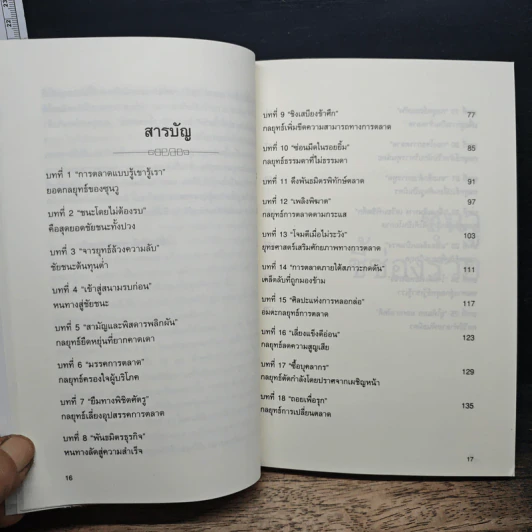 สารบัญ
บทที่ 1 "การตลาดแบบรู้เขารู้เรา"
ยอดกลยุทธ์ของซุนวู
บทที่ 2 "ชนะโดยไม่ต้องรบ"
คือสุดยอดชัยชนะทั้งปวง
บทที่ 3 "จารยุทธ์ล้วงความลับ"
ชัยชนะต้นทุนต่ำ
บทที่ 4 "เข้าสู่สนามรบก่อน"
หนทางสู่ชัยชนะ
บทที่ 5 "สามัญและพิสดารพลิกผัน"
กลยุทธ์ยืดหยุ่นที่ยากคาดเดา
บทที่ 6 "มรรคการตลาด"
กลยุทธ์ครองใจผู้บริโภค
บทที่ 7 "ยืมทางพิชิตศัตรู"
กลยุทธ์เลี่ยงอุปสรรคการตลาด
บทที่ 8 "พันธมิตรธุรกิจ"
หนทางลัดสู่ความสำเร็จ
16
บทที่ 9 "ชิงเสบียงข้าศึก" 77
กลยุทธ์เพิ่มขีดความสามารถทางการตลาด
บทที่ 10 "ซ่อนมีดในรอยยิ้ม" 85
กลยุทธ์ธรรมดาที่ไม่ธรรมดา
บทที่ 11 ดึงพันธมิตรพิทักษ์ตลาด 91
บทที่ 12 "เพลิงพิฆาต" 97
กลยุทธ์การตลาดตามกระแส
บทที่ 13 "โจมตีเมื่อไม่ระวัง" 103
ยุทธศาสตร์เสริมศักยภาพทางการตลาด
บทที่ 14 "การตลาดภายใต้สภาวะกดดัน" 111
เคล็ดลับที่ถูกมองข้าม
บทที่ 15 "ศิลปะแห่งการหลอกล่อ" 117
อมตะกลยุทธ์การตลาด
บทที่ 16 "เลี่ยงแข็งตีอ่อน" 123
กลยุทธ์ลดความสูญเสีย
บทที่ 17 "ซื้อบุคลากร" 129
กลยุทธ์ตัดกำลังโดยปราศจากเผชิญหน้า
บทที่ 18 "ถอยเพื่อรุก" 135
กลยุทธ์การเปลี่ยนตลาด
17